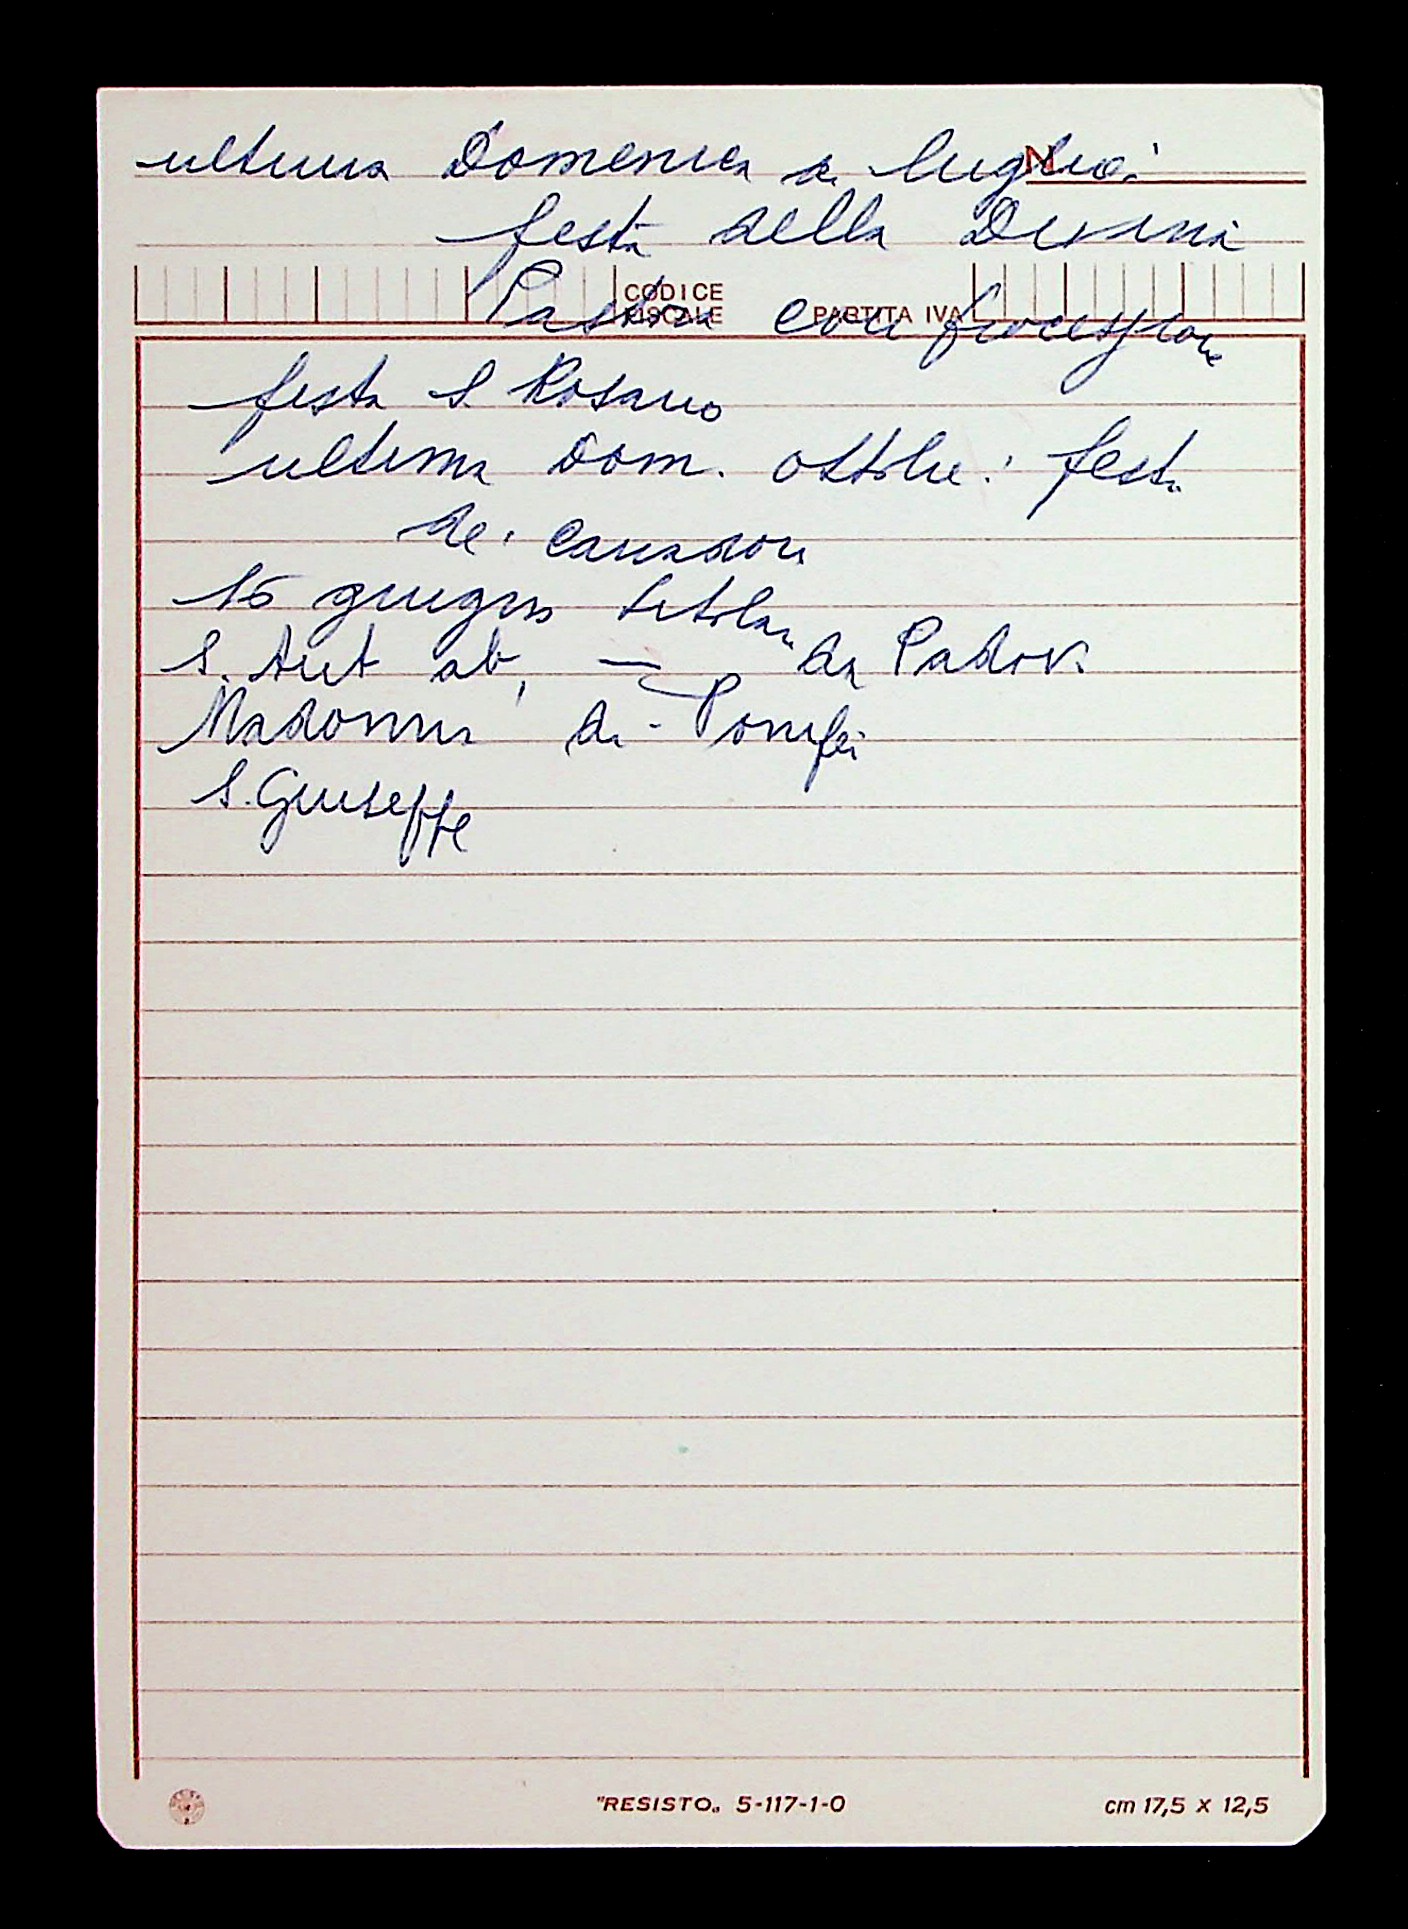 ultima Domenica di luglio:
N
festa della Divina
CODICE
FISCALE
PARTITA IVA
Pastora con processione
festa S. Rosario
ultima Dom. ottobre: festa
dei
15 giugno titolare
S. Ant ab, — da Padova
Madonna di Pompei
S. Giuseppe
"RESISTO" 5-117-1-0
cm 17,5 x 12,5